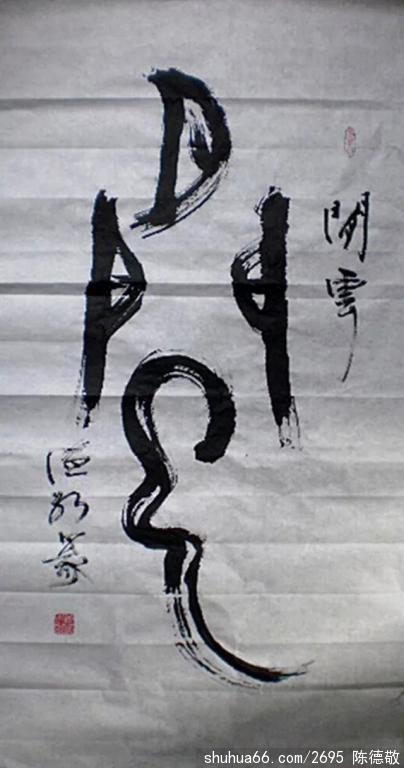 閒云
閒雲
德敬篆
shuhua66.com/2695 陈德敬